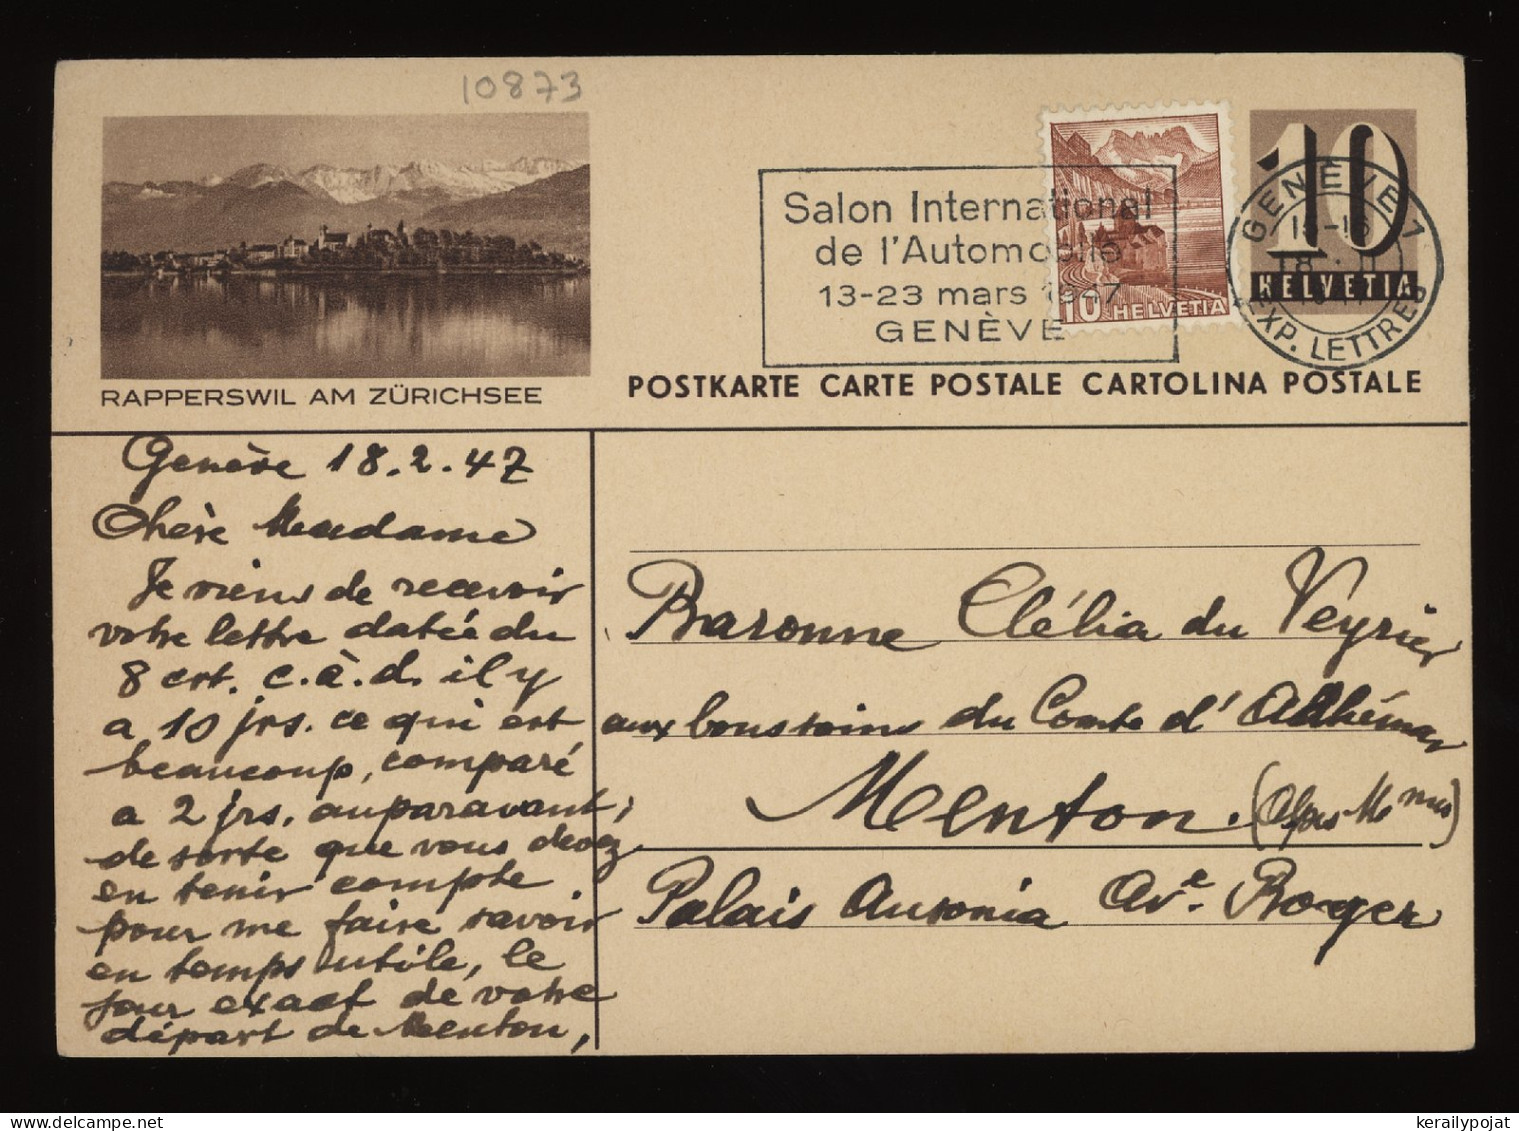 10873
Salon International
de l'Automobile
13-23 mars 1947
GENÈVE
10 HELVETIA
10
HELVETIA
GENÈVE 1
EXP. LETTRES
RAPPERSWIL AM ZÜRICHSEE
POSTKARTE CARTE POSTALE CARTOLINA POSTALE
Genève 18.2.47
Chère Madame
Je viens de recevoir
votre lettre datée du
8 crt. c.à.d. il y
a 10 jrs. ce qui est
beaucoup, comparé
a 2 jrs. auparavant;
de sorte que vous devez
en tenir compte
pour me faire savoir
en temps utile, le
jour exact de votre
départ de Menton,
Baronne Clélia du Veyrier
aux bons soins du Comte d'Adhémar
Menton. (Alpes-Mmes)
Palais Ausonia Ave. Boyer
kerailypojat
www.delcampe.net